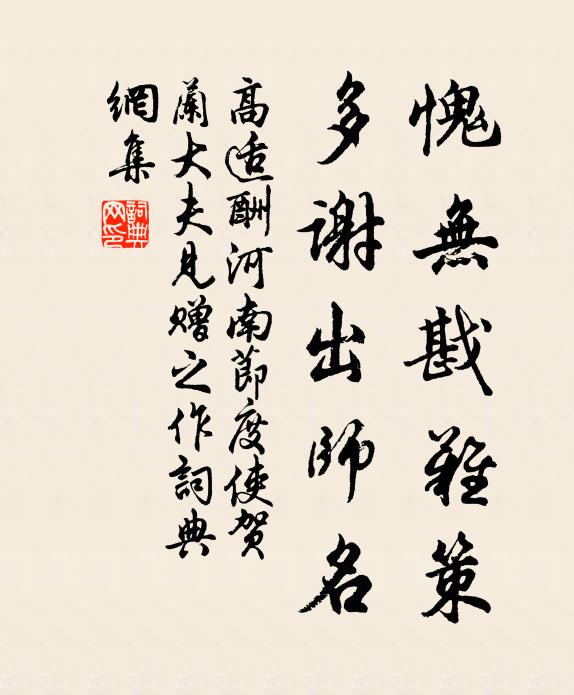 愧無戡難策
多謝出師名
高适酬河南節度使賀
蘭大夫見贈之作詞典
網集
詞典
网印